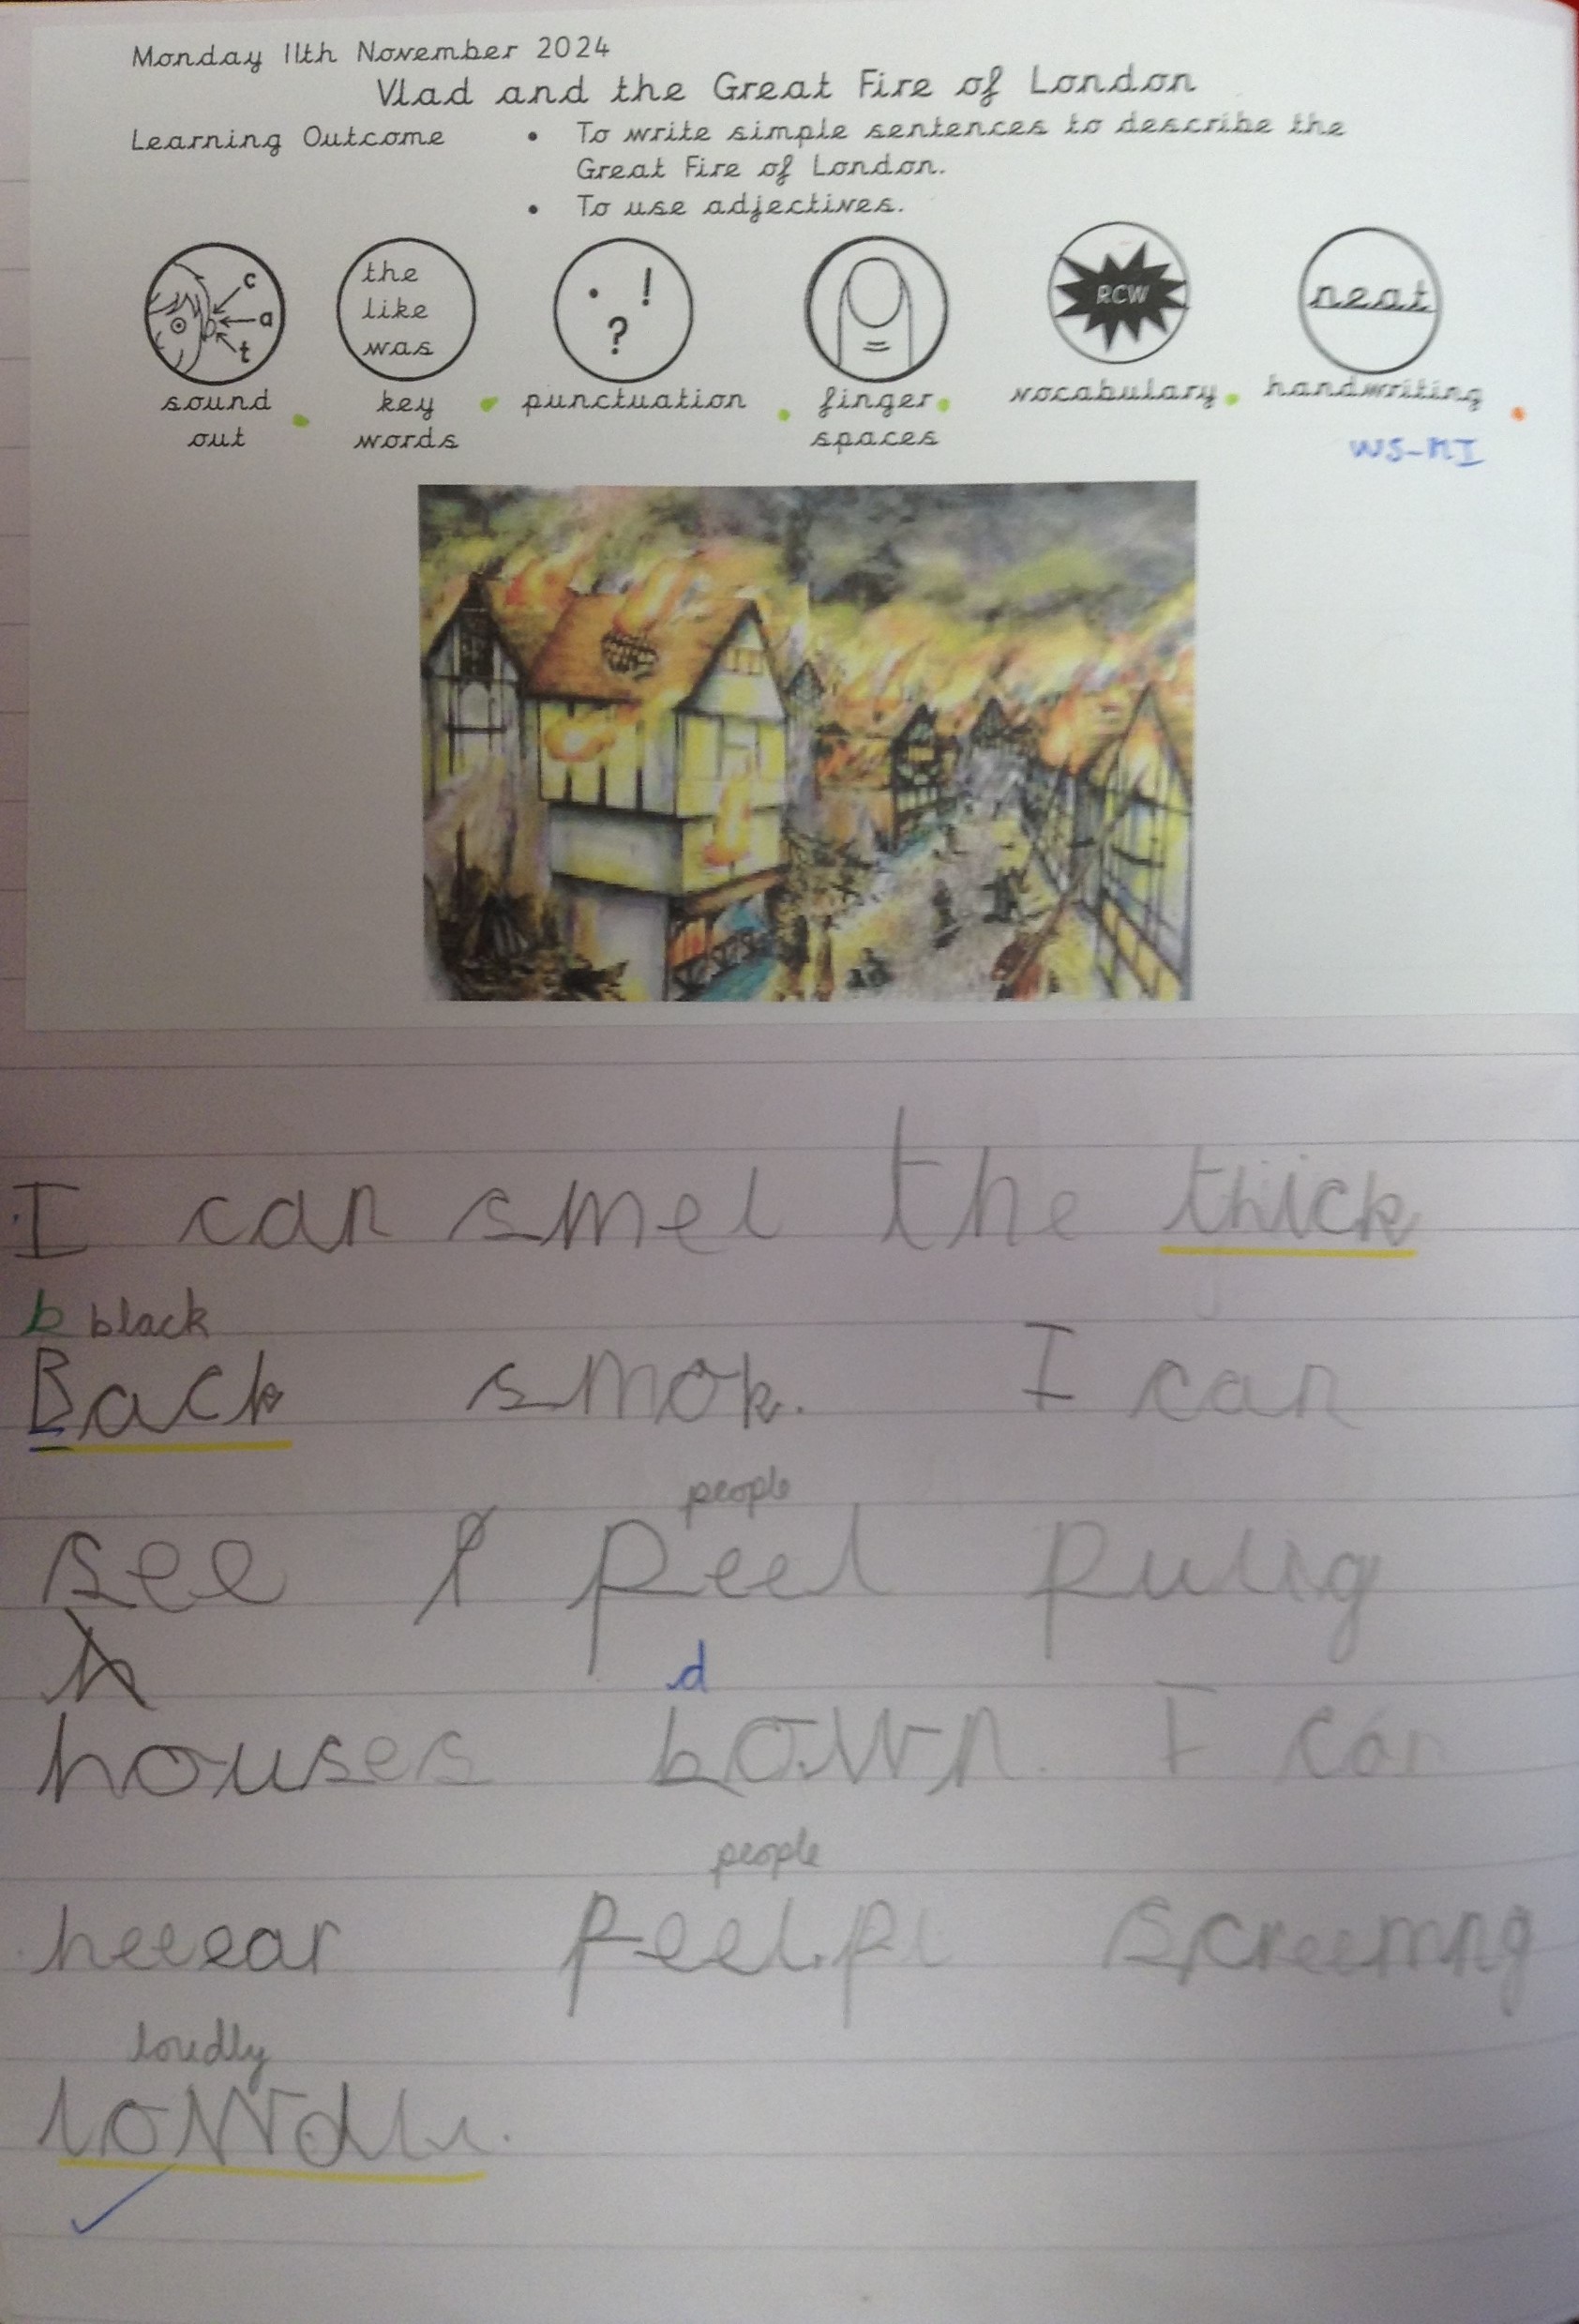 Monday 11th November 2024
Vlad and the Great Fire of London
Learning Outcome
• To write simple sentences to describe the
Great Fire of London.
• To use adjectives.
c
a
t
the
like
was
. !
?
RCW
neat
sound out
key words
punctuation
finger spaces
vocabulary
handwriting
WS-MI
I can smel the thick
b black
Back smok. I can
people
see peel pulig
h
d
houses bown. I can
people
heeear peelpl screemng
loudly
lowdlu.